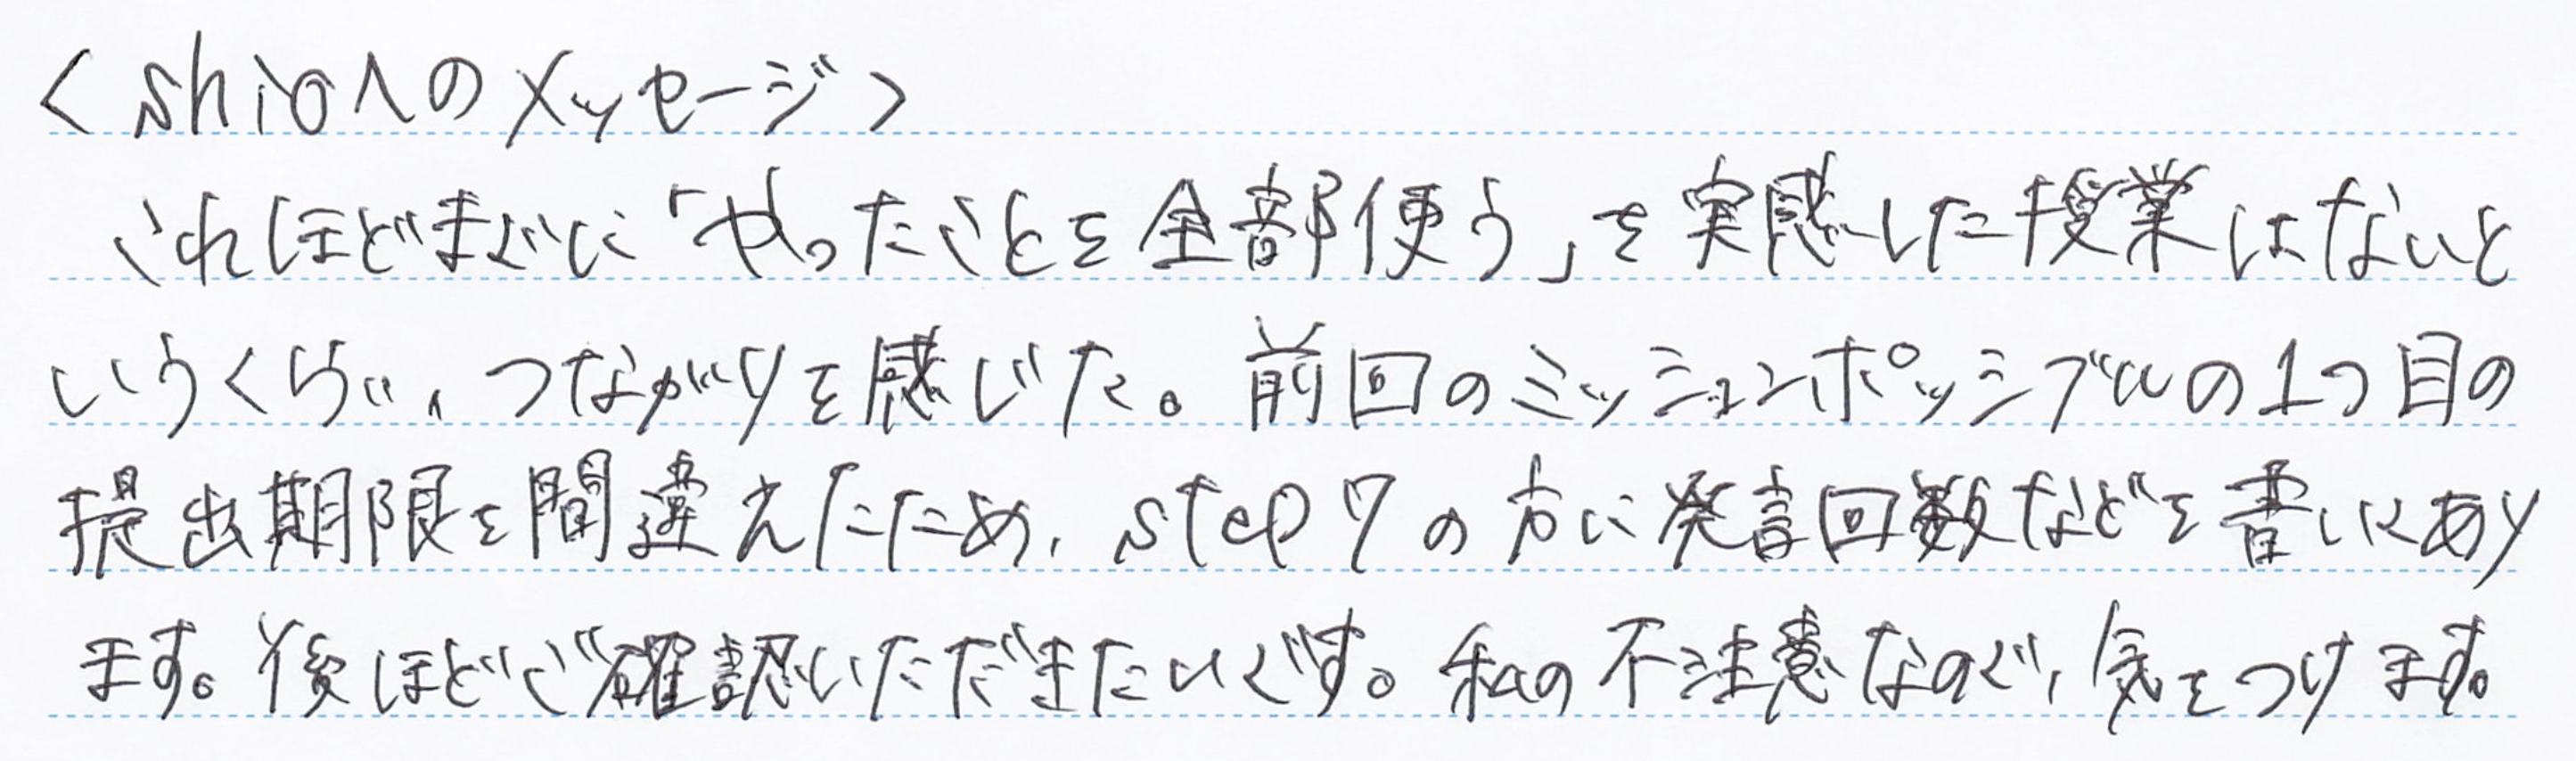 ＜shioへのメッセージ＞
これほどまでに「やったことを全部使う」を実感した授業はないと
いうくらい、つながりを感じた。前回のミッションポッシブルの1つ目の
提出期限を間違えたため、step7の方に発言回数などを書いてあり
ます。後ほどご確認いただきたいです。私の不注意なので、気をつけます。